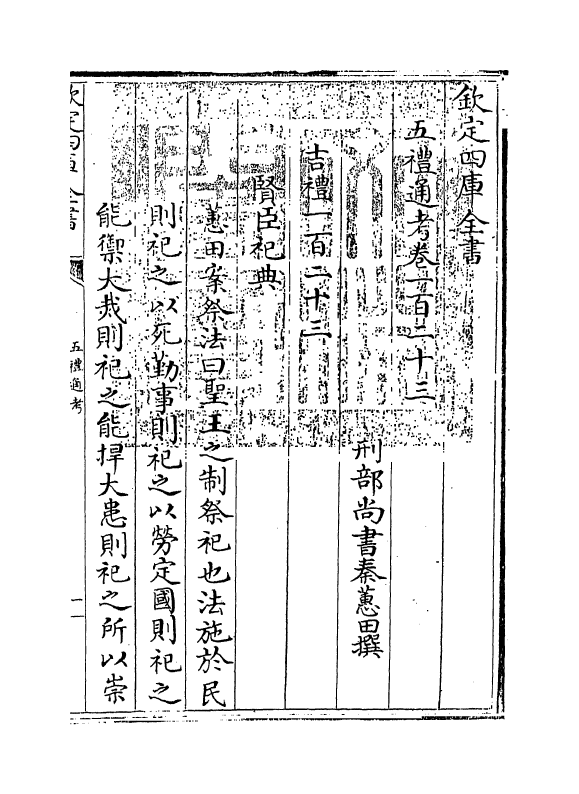 欽定四庫全書
五禮通考卷一百二十三
刑部尚書秦蕙田撰
吉禮一百二十三
賢臣祀典
蕙田案祭法曰聖王之制祭祀也法施於民
則祀之以死勤事則祀之以勞定國則祀之
能禦大烖則祀之能捍大患則祀之所以崇
欽定四庫全書
五禮通考
一